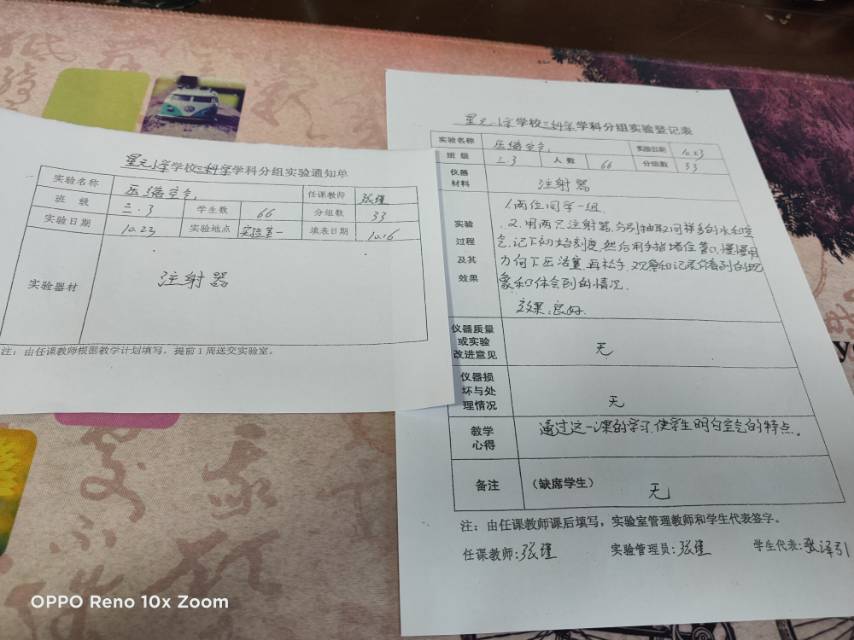 星元小学学校三科学学科分组实验通知单
实验名称 压缩空气 任课教师 张瑾
班 级 三.3 学生数 66 分组数 33
实验日期 10.23 实验地点 实验室一 填表日期 10.16
实验器材 注射器
注：由任课教师根据教学计划填写，提前1周送交实验室。
星元小学学校三科学学科分组实验登记表
实验名称 压缩空气 实验日期 10.23
班 级 三.3 人 数 66 分组数 33
仪器材料 注射器
实验过程及其效果
1.两位同学一组.
2.用两只注射器,分别抽取同样多的水和空
气,记下初始刻度,然后用手指堵住管口,慢慢用
力向下压活塞,再松手,观察和记录你看到的现
象和体会到的情况.
效果:良好.
仪器质量或实验改进意见 无
仪器损坏与处理情况 无
教学心得 通过这一课的学习,使学生明白空气的特点。
备注 （缺席学生） 无
注：由任课教师课后填写，实验室管理教师和学生代表签字。
任课教师:张瑾 实验管理员:张瑾 学生代表:张译引
OPPO Reno 10x Zoom